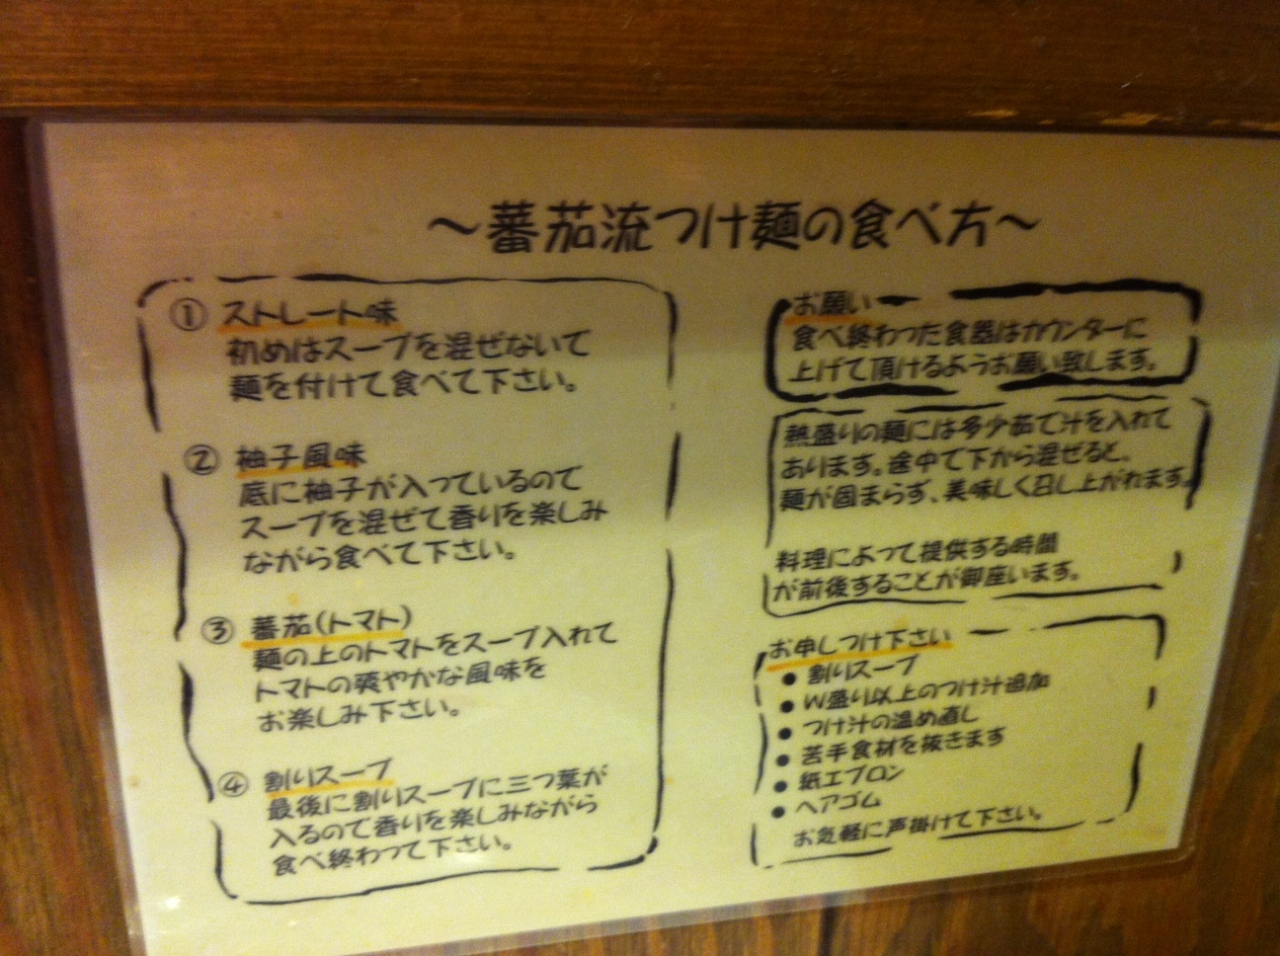 〜蕃茄流つけ麺の食べ方〜
① ストレート味
初めはスープを混ぜないで
麺を付けて食べて下さい。
② 柚子風味
底に柚子が入っているので
スープを混ぜて香りを楽しみ
ながら食べて下さい。
③ 蕃茄(トマト)
麺の上のトマトをスープ入れて
トマトの爽やかな風味を
お楽しみ下さい。
④ 割りスープ
最後に割りスープに三つ葉が
入るので香りを楽しみながら
食べ終わって下さい。
お願い
食べ終わった食器はカウンターに
上げて頂けるようお願い致します。
熱盛りの麺には多少茹で汁を入れて
あります。途中で下から混ぜると、
麺が固まらず、美味しく召し上がれます。
料理によって提供する時間
が前後することが御座います。
お申しつけ下さい
● 割りスープ
● W盛り以上のつけ汁追加
● つけ汁の温め直し
● 苦手食材を抜きます
● 紙エプロン
● ヘアゴム
お気軽に声掛けて下さい。